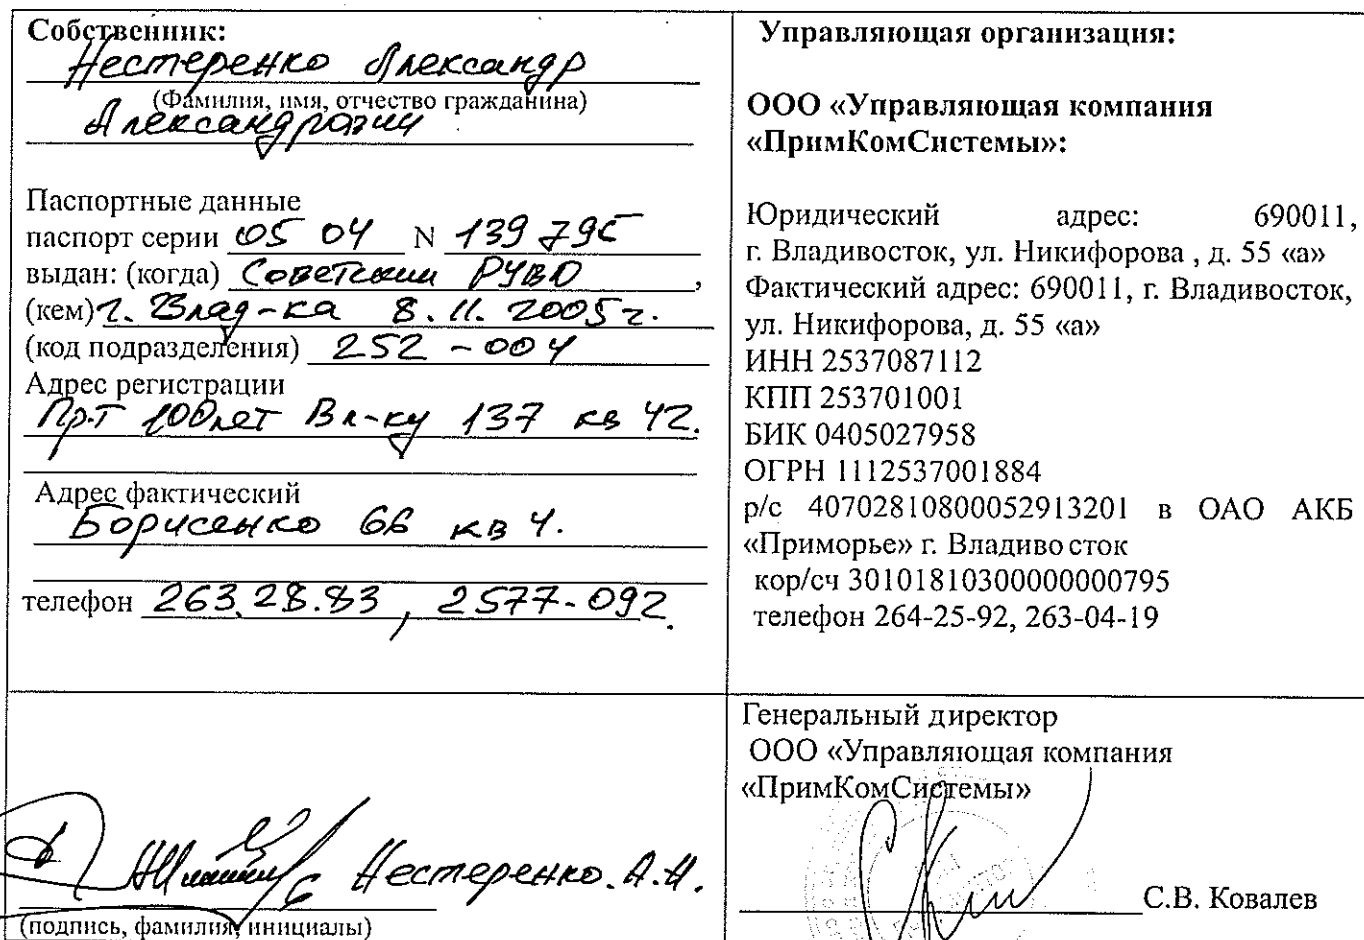 Собственник:
Нестеренко Александр
(Фамилия, имя, отчество гражданина)
Александрович
Паспортные данные
паспорт серии 05 04 N 139 795
выдан: (когда) Советским РУВД,
(кем) г. Влад-ка 8.11.2005г.
(код подразделения) 252-004
Адрес регистрации
Пр-т 100лет Вл-ку 137 кв 42.
Адрес фактический
Борисенко 66 кв 4.
телефон 263.28.83, 2577-092.
Нестеренко.А.А.
(подпись, фамилия, инициалы)
Управляющая организация:
ООО «Управляющая компания
«ПримКомСистемы»:
Юридический адрес: 690011,
г. Владивосток, ул. Никифорова , д. 55 «а»
Фактический адрес: 690011, г. Владивосток,
ул. Никифорова, д. 55 «а»
ИНН 2537087112
КПП 253701001
БИК 0405027958
ОГРН 1112537001884
р/с 40702810800052913201 в ОАО АКБ
«Приморье» г. Владивосток
кор/сч 30101810300000000795
телефон 264-25-92, 263-04-19
Генеральный директор
ООО «Управляющая компания
«ПримКомСистемы»
С.В. Ковалев